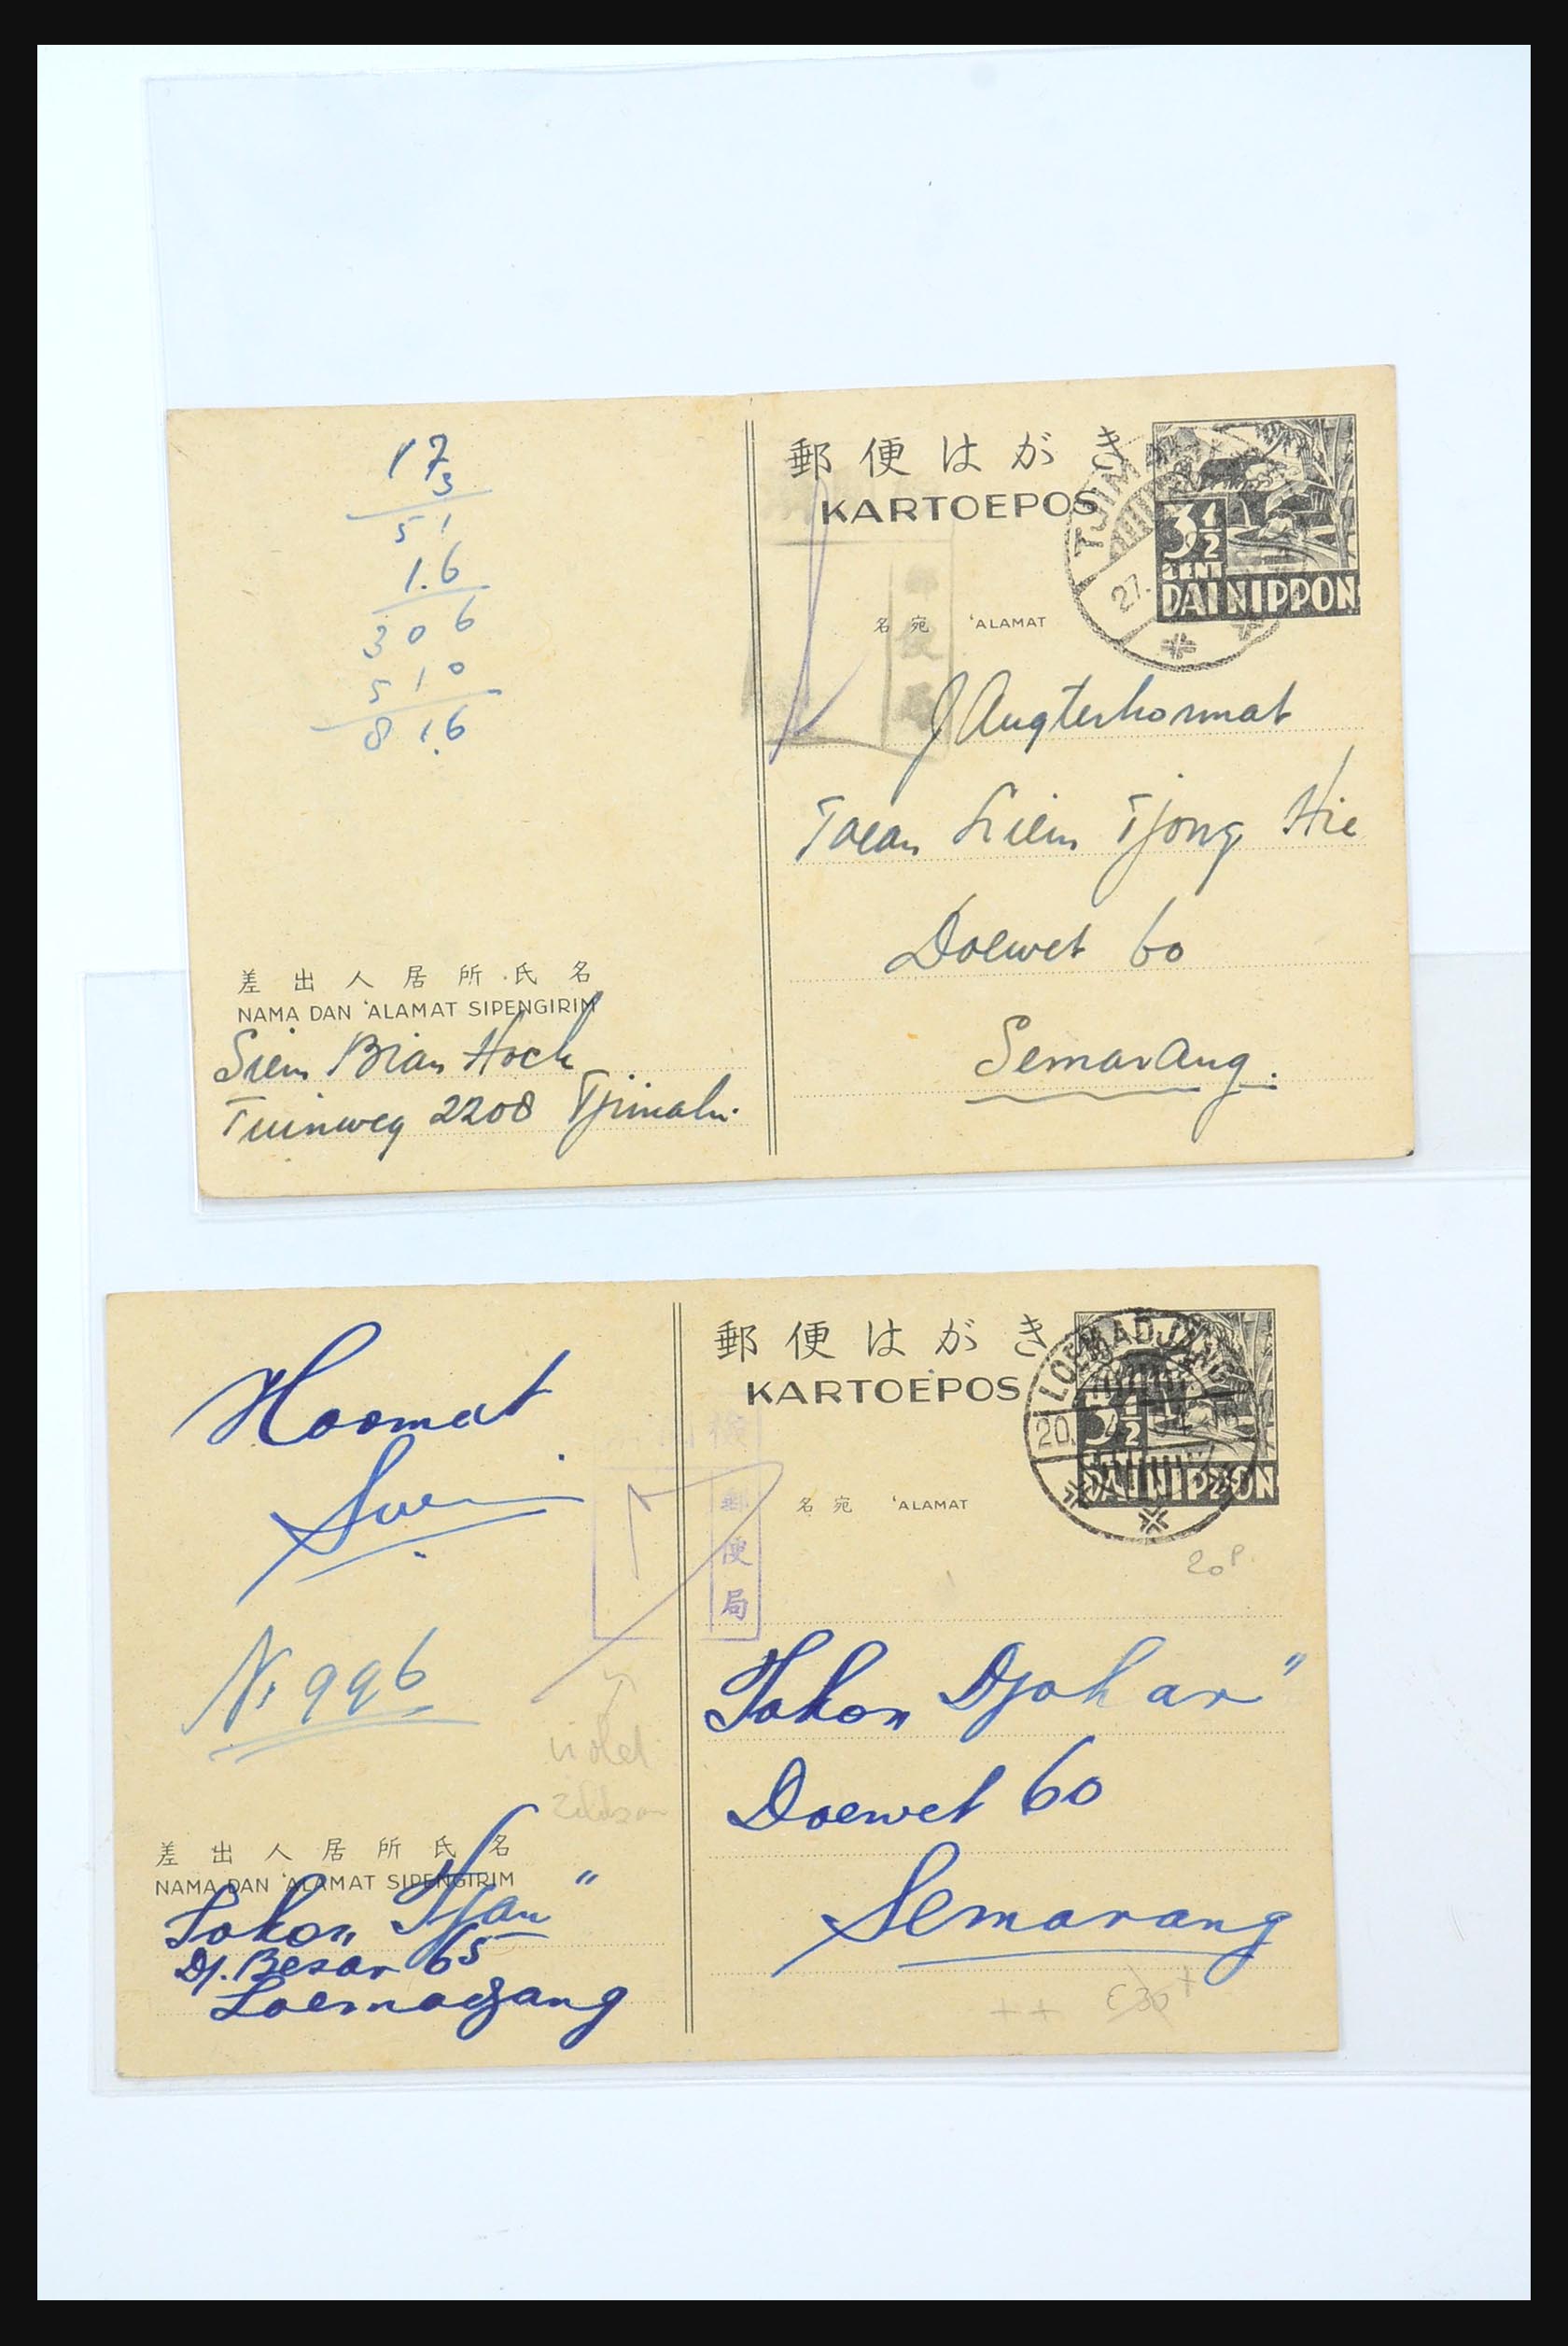 17
3
51
1.6
306
510
81.6
郵便はがき
KARTOEPOS
TJIM
27.
3½
CENT
DAI NIPPON
名宛 'ALAMAT
郵便局
Jangterhormat
Toean Liem Tjong Hie
Doewet 60
Semarang.
差出人居所氏名
NAMA DAN 'ALAMAT SIPENGIRIM
Siem Bian Hoch
Tuinweg 2208 Tjimahi.
Hormat
No 996
violet
郵便はがき
KARTOEPOS
LOEMADJANG
20.
3½
CENT
DAI NIPPON
名宛 'ALAMAT
検
郵便局
20 P.
Toko „Djohar"
Doewet 60
Semarang
++ €30 +
差出人居所氏名
NAMA DAN 'ALAMAT SIPENGIRIM
Toko „Tjan"
Dj. Besar 65
Loemadjang